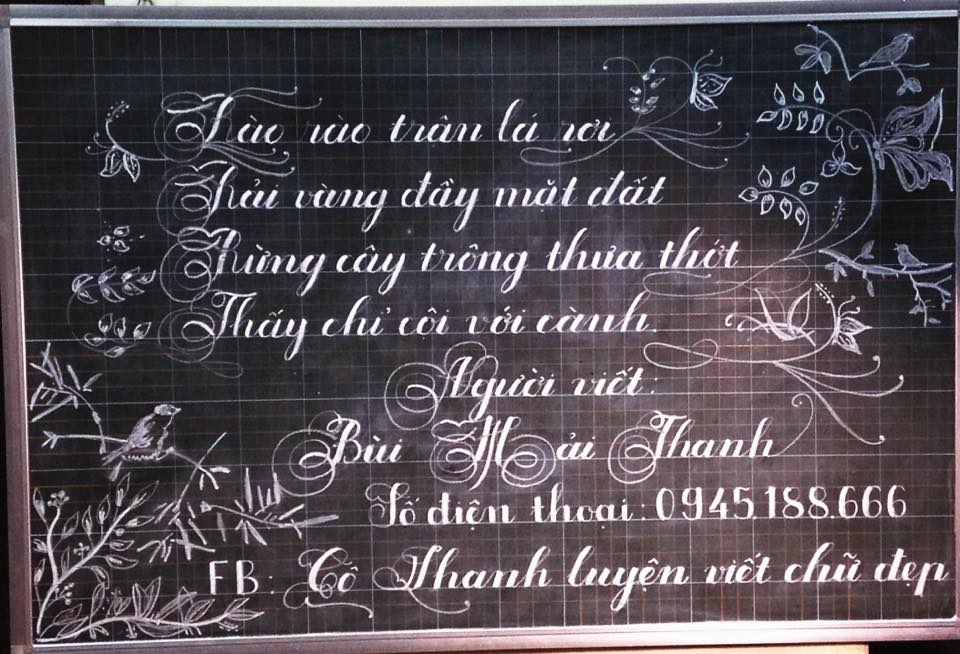 Lào rào trận lá rơi
Trải vàng đầy mặt đất
Rừng cây trông thưa thớt
Thấy chỉ cội với cành.
Người viết:
Bùi Hải Thanh
Số điện thoại: 0945.188.666
FB: Cô Thanh luyện viết chữ đẹp